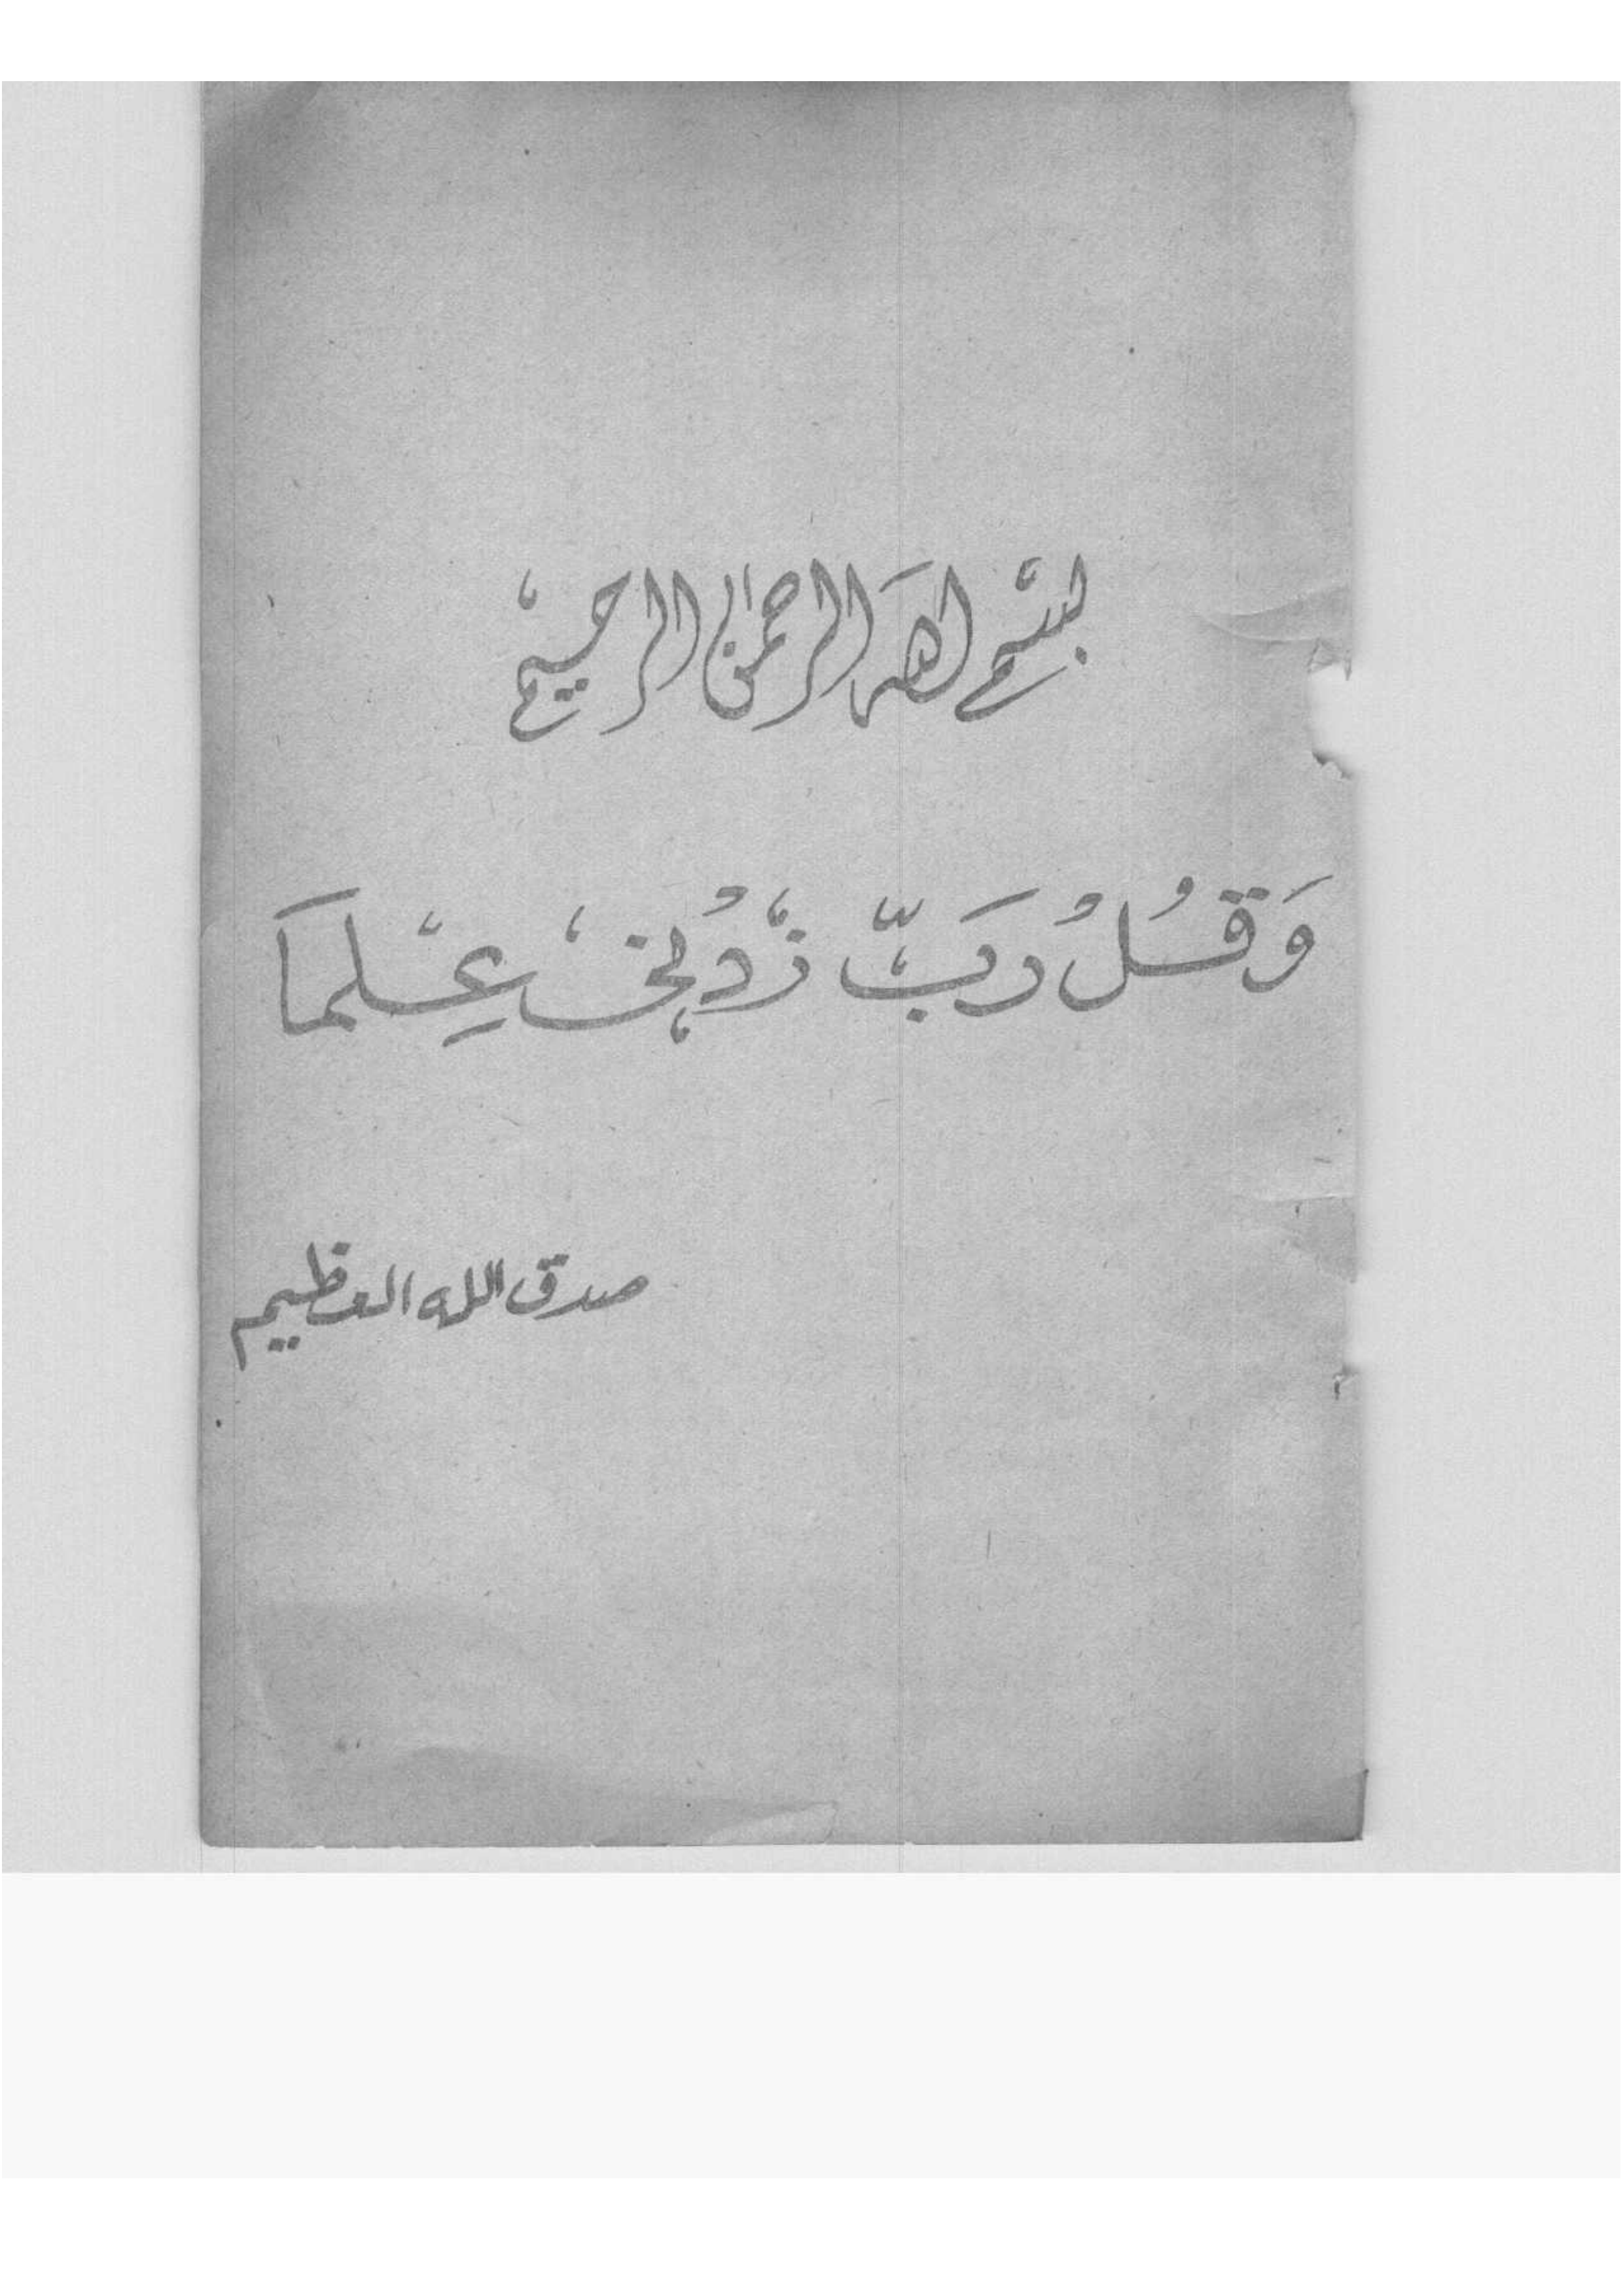 بسم الله الرحمن الرحيم
وَقُلُ رَبِّ زدْني عِلمَا
صدق الله العظيم